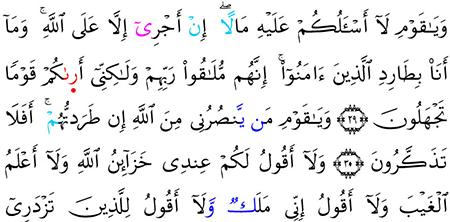 وَيَٰقَوْمِ لَآ أَسْـَٔلُكُمْ عَلَيْهِ مَالًاۖ إِنْ أَجْرِىَ إِلَّا عَلَى ٱللَّهِۚ وَمَآ
أَنَا۠ بِطَارِدِ ٱلَّذِينَ ءَامَنُوٓا۟ۚ إِنَّهُم مُّلَٰقُوا۟ رَبِّهِمْ وَلَٰكِنِّىٓ أَرَىٰكُمْ قَوْمًا
تَجْهَلُونَ ۝٢٩ وَيَٰقَوْمِ مَن يَنصُرُنِى مِنَ ٱللَّهِ إِن طَرَدتُّهُمْۚ أَفَلَا
تَذَكَّرُونَ ۝٣٠ وَلَآ أَقُولُ لَكُمْ عِندِى خَزَآئِنُ ٱللَّهِ وَلَآ أَعْلَمُ
ٱلْغَيْبَ وَلَآ أَقُولُ إِنِّى مَلَكٌ وَلَآ أَقُولُ لِلَّذِينَ تَزْدَرِىٓ